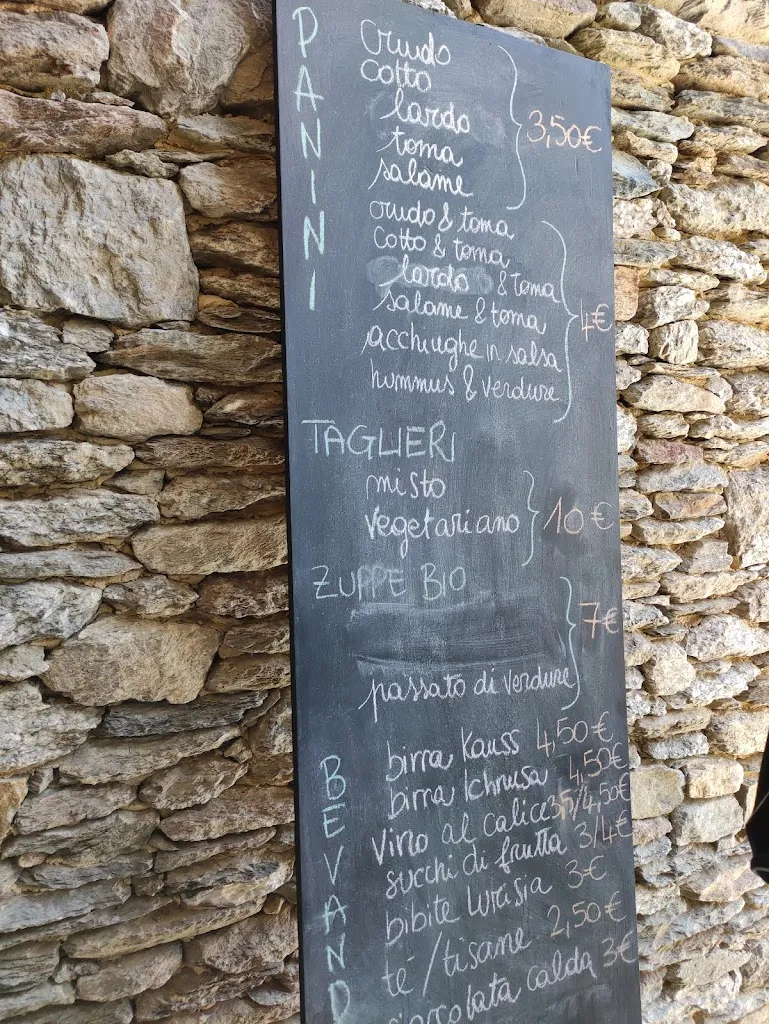 PANINI
Crudo
Cotto
lardo
toma
salame
3,50€
crudo & toma
cotto & toma
lardo & toma
salame & toma
acchiughe in salsa
hummus & verdure
4€
TAGLIERI
misto
vegetariano
10€
ZUPPE BIO
passato di verdure
7€
BEVAND
birra Kauss 4,50€
birra Ichnusa 4,50€
vino al calice 3,5/4,50€
succhi di frutta 3/4€
bibite Lurisia 3€
te/tisane 2,50€
cioccolata calda 3€